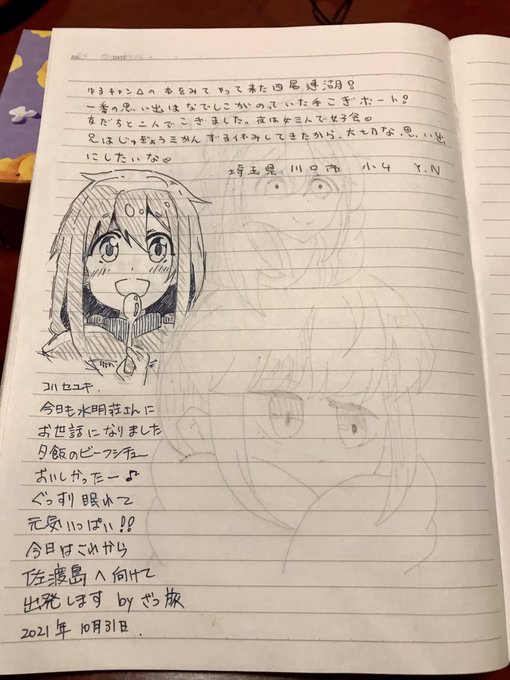 ゆるキャン△の本をみてやって来た四尾連湖!
一番の思い出はなでしこがのっていた手こぎボート!
友だちと二人でこぎました。夜は女三人で女子会♡
兄はじゅぎょう三かんずる休みしてきたから、大切な思い出
にしたいな♡
埼玉県 川口市 小4 Y.N
コバセユキ.
今日も水明荘さんに
お世話になりました
夕飯のビーフシチュー
おいしかったー♪
ぐっすり眠れて
元気いっぱい!!
今日はこれから
佐渡島へ向けて
出発します byざっ旅
2021年10月31日.